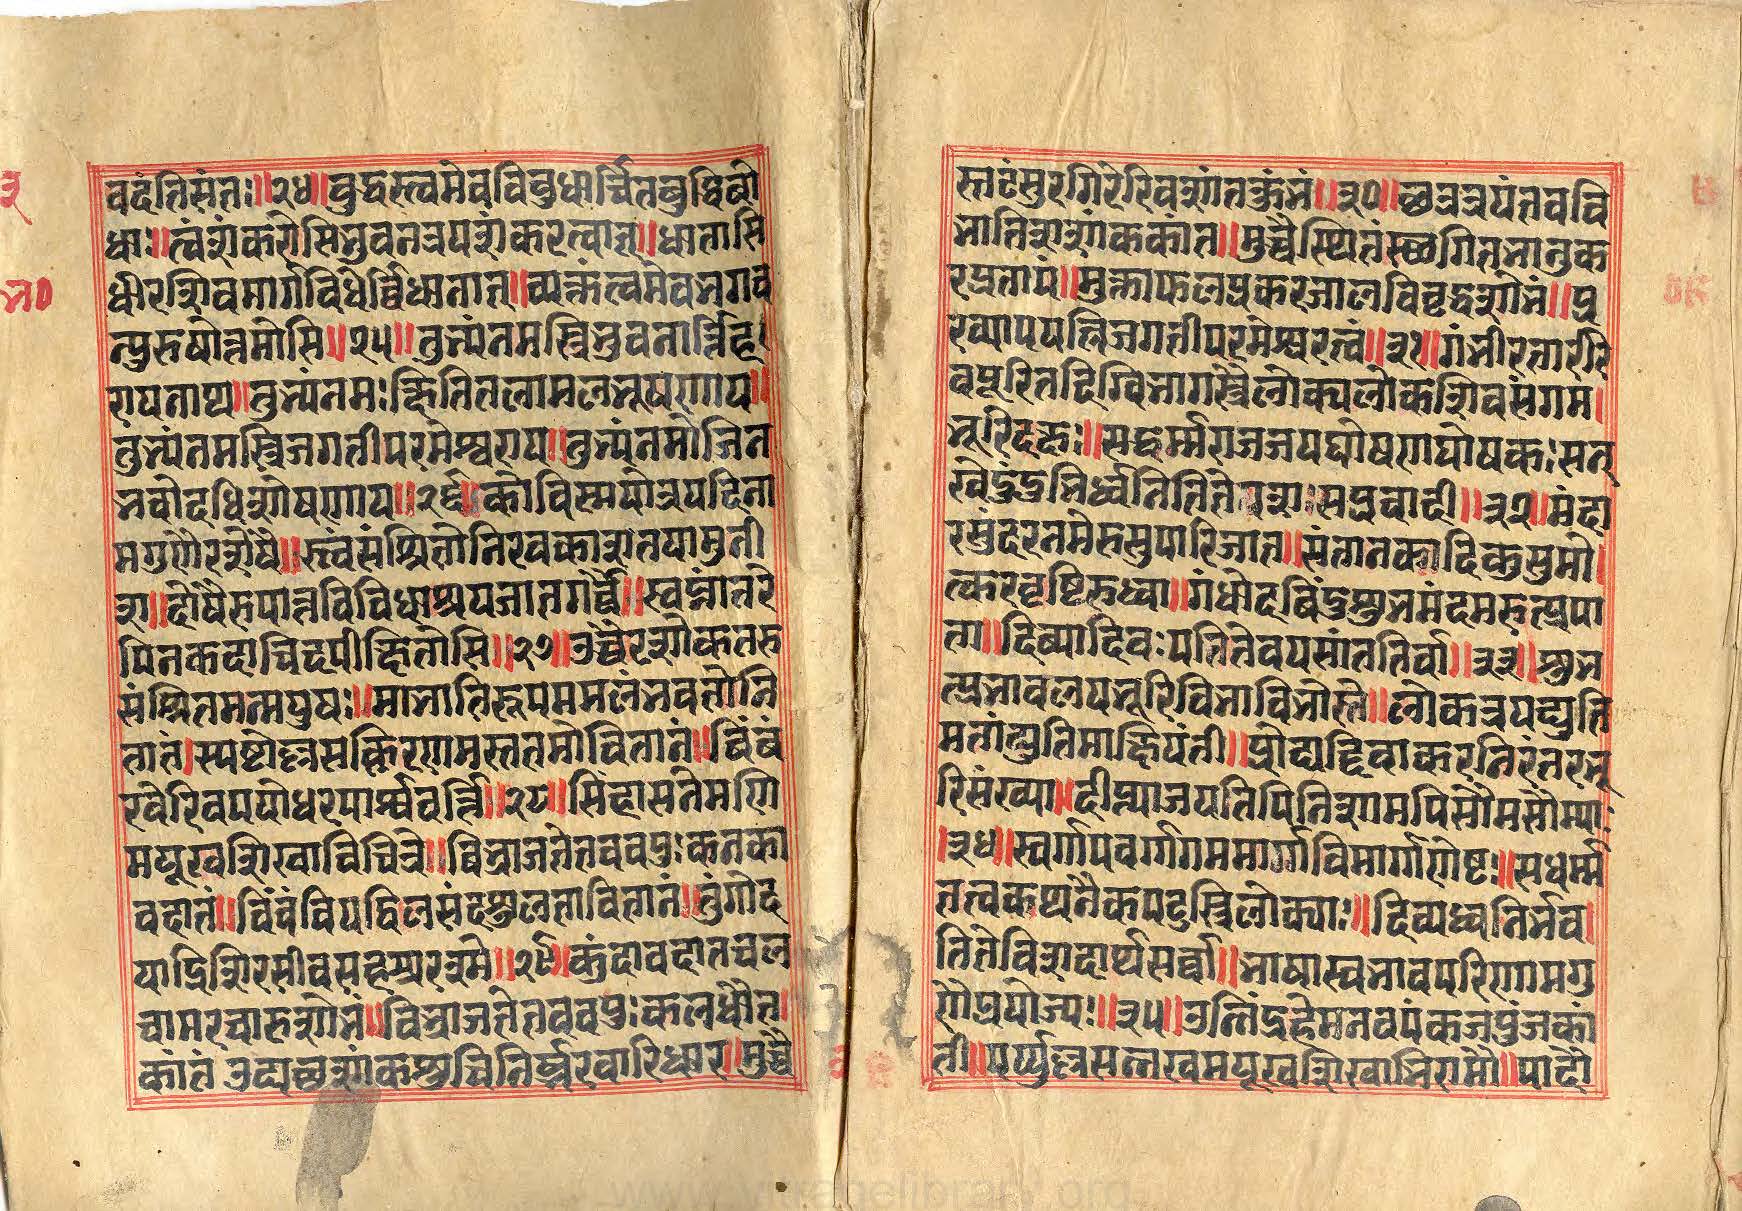 ३
भ०
वदंतिसंतः॥२४॥बुद्धस्त्वमेवविबुधार्च्चितबुद्धिबो
धाः॥त्वंशंकरोसिभुवनत्रयशंकरत्वात्॥धातासि
धीरशिवमार्गविधेर्विधानात्॥व्यक्तंत्वमेवभगव
त्पुरुषोत्तमोसि॥२५॥तुभ्यंनमस्त्रिभुवनार्त्तिह
रायनाथ॥तुभ्यंनमःक्षितितलामलभूषणाय॥
तुभ्यंनमस्त्रिजगतीपरमेश्वराय॥तुभ्यंनमोजिन
भवोदधिशोषणाय॥२६॥कोविस्मयोत्रयदिना
मगुणैरशेषै॥स्त्वंसंश्रितोनिरवकाशतयामुनी
श॥दोषैरुपात्तविविधाश्रयजातगर्वै॥स्वप्नांतरे
पिनकदाचिदपीक्षितोसि॥२७॥उच्चैरशोकतरु
संश्रितमन्मयुषः॥माभातिरूपममलंभवतोनि
तांतं।स्पष्टोल्लसत्किरणमस्ततमोवितानं॥बिंबं
रवेरिवपयोधरपार्श्ववर्त्ति॥२८॥सिंहासनेमणि
मयूखशिखाविचित्रे॥विभ्राजतेतववपुःकनका
वदातं॥बिंबंवियद्विलसदंशुलतावितानं॥तुंगोद
याद्रिशिरसीवसहस्ररश्मे॥२९॥कुंदावदातचल
चामरचारुशोभं॥विभ्राजतेतववपुःकलधौत।
कांतंउद्यच्छशांकशुचिनिर्झरवारिधार॥मुच्चै
स्तटंसुरगिरेरिवशातकुंभं॥३०॥छत्रत्रयंतववि
भातिशशांककांत॥मुच्चैस्थितंस्छगितभानुक
रप्रतापं॥मुक्ताफलप्रकरजालविवृद्धशोभं॥प्र
ख्यापयत्त्रिजगतीपरमेश्वरत्वं॥३१॥गंभीरतारर
वपूरितदिग्विभागस्त्रैलोक्यलोकशिवसंगम।
भूरिदक्षः॥सद्धर्म्मराजजयघोषणघोषकःसन्
खेदुंदुभिर्ध्वनितितेयशःसप्रवादी॥३२॥मंदा
रसुंदरनमेरुसुपारिजात॥संतानकादिकुसुमो।
त्करवृष्टिरुध्वा॥गंधोदबिंदुशुभमंदमरुत्प्रपा
ता॥दिव्यादिवःपतितेवयसांततिर्वा॥३३॥शुभ
त्प्रभावलयभूरिविभाविभोस्ते॥लोकत्रयद्युति
मतांद्युतिमाक्षिपंती॥प्रोद्यद्दिवाकरनिरंतरभू
रिसंख्या॥दीप्त्याजयतिपिनिशामपिसोमसौम्यां
।३४॥स्वर्गापवर्गगममार्गविमार्गणेष्टः॥सधर्म्म
तत्वकथनैकपटुस्त्रिलोक्याः॥दिव्यध्वनिर्भव।
तितेविशदार्थसर्व्वा॥भाषास्वभावपरिणामगु
णैप्रयोज्यः॥३५॥उन्निंद्रहेमनवपंकजपुंजकां
ती॥पर्य्युल्लसन्नखमयूखशिखाभिरामौ॥पादौ